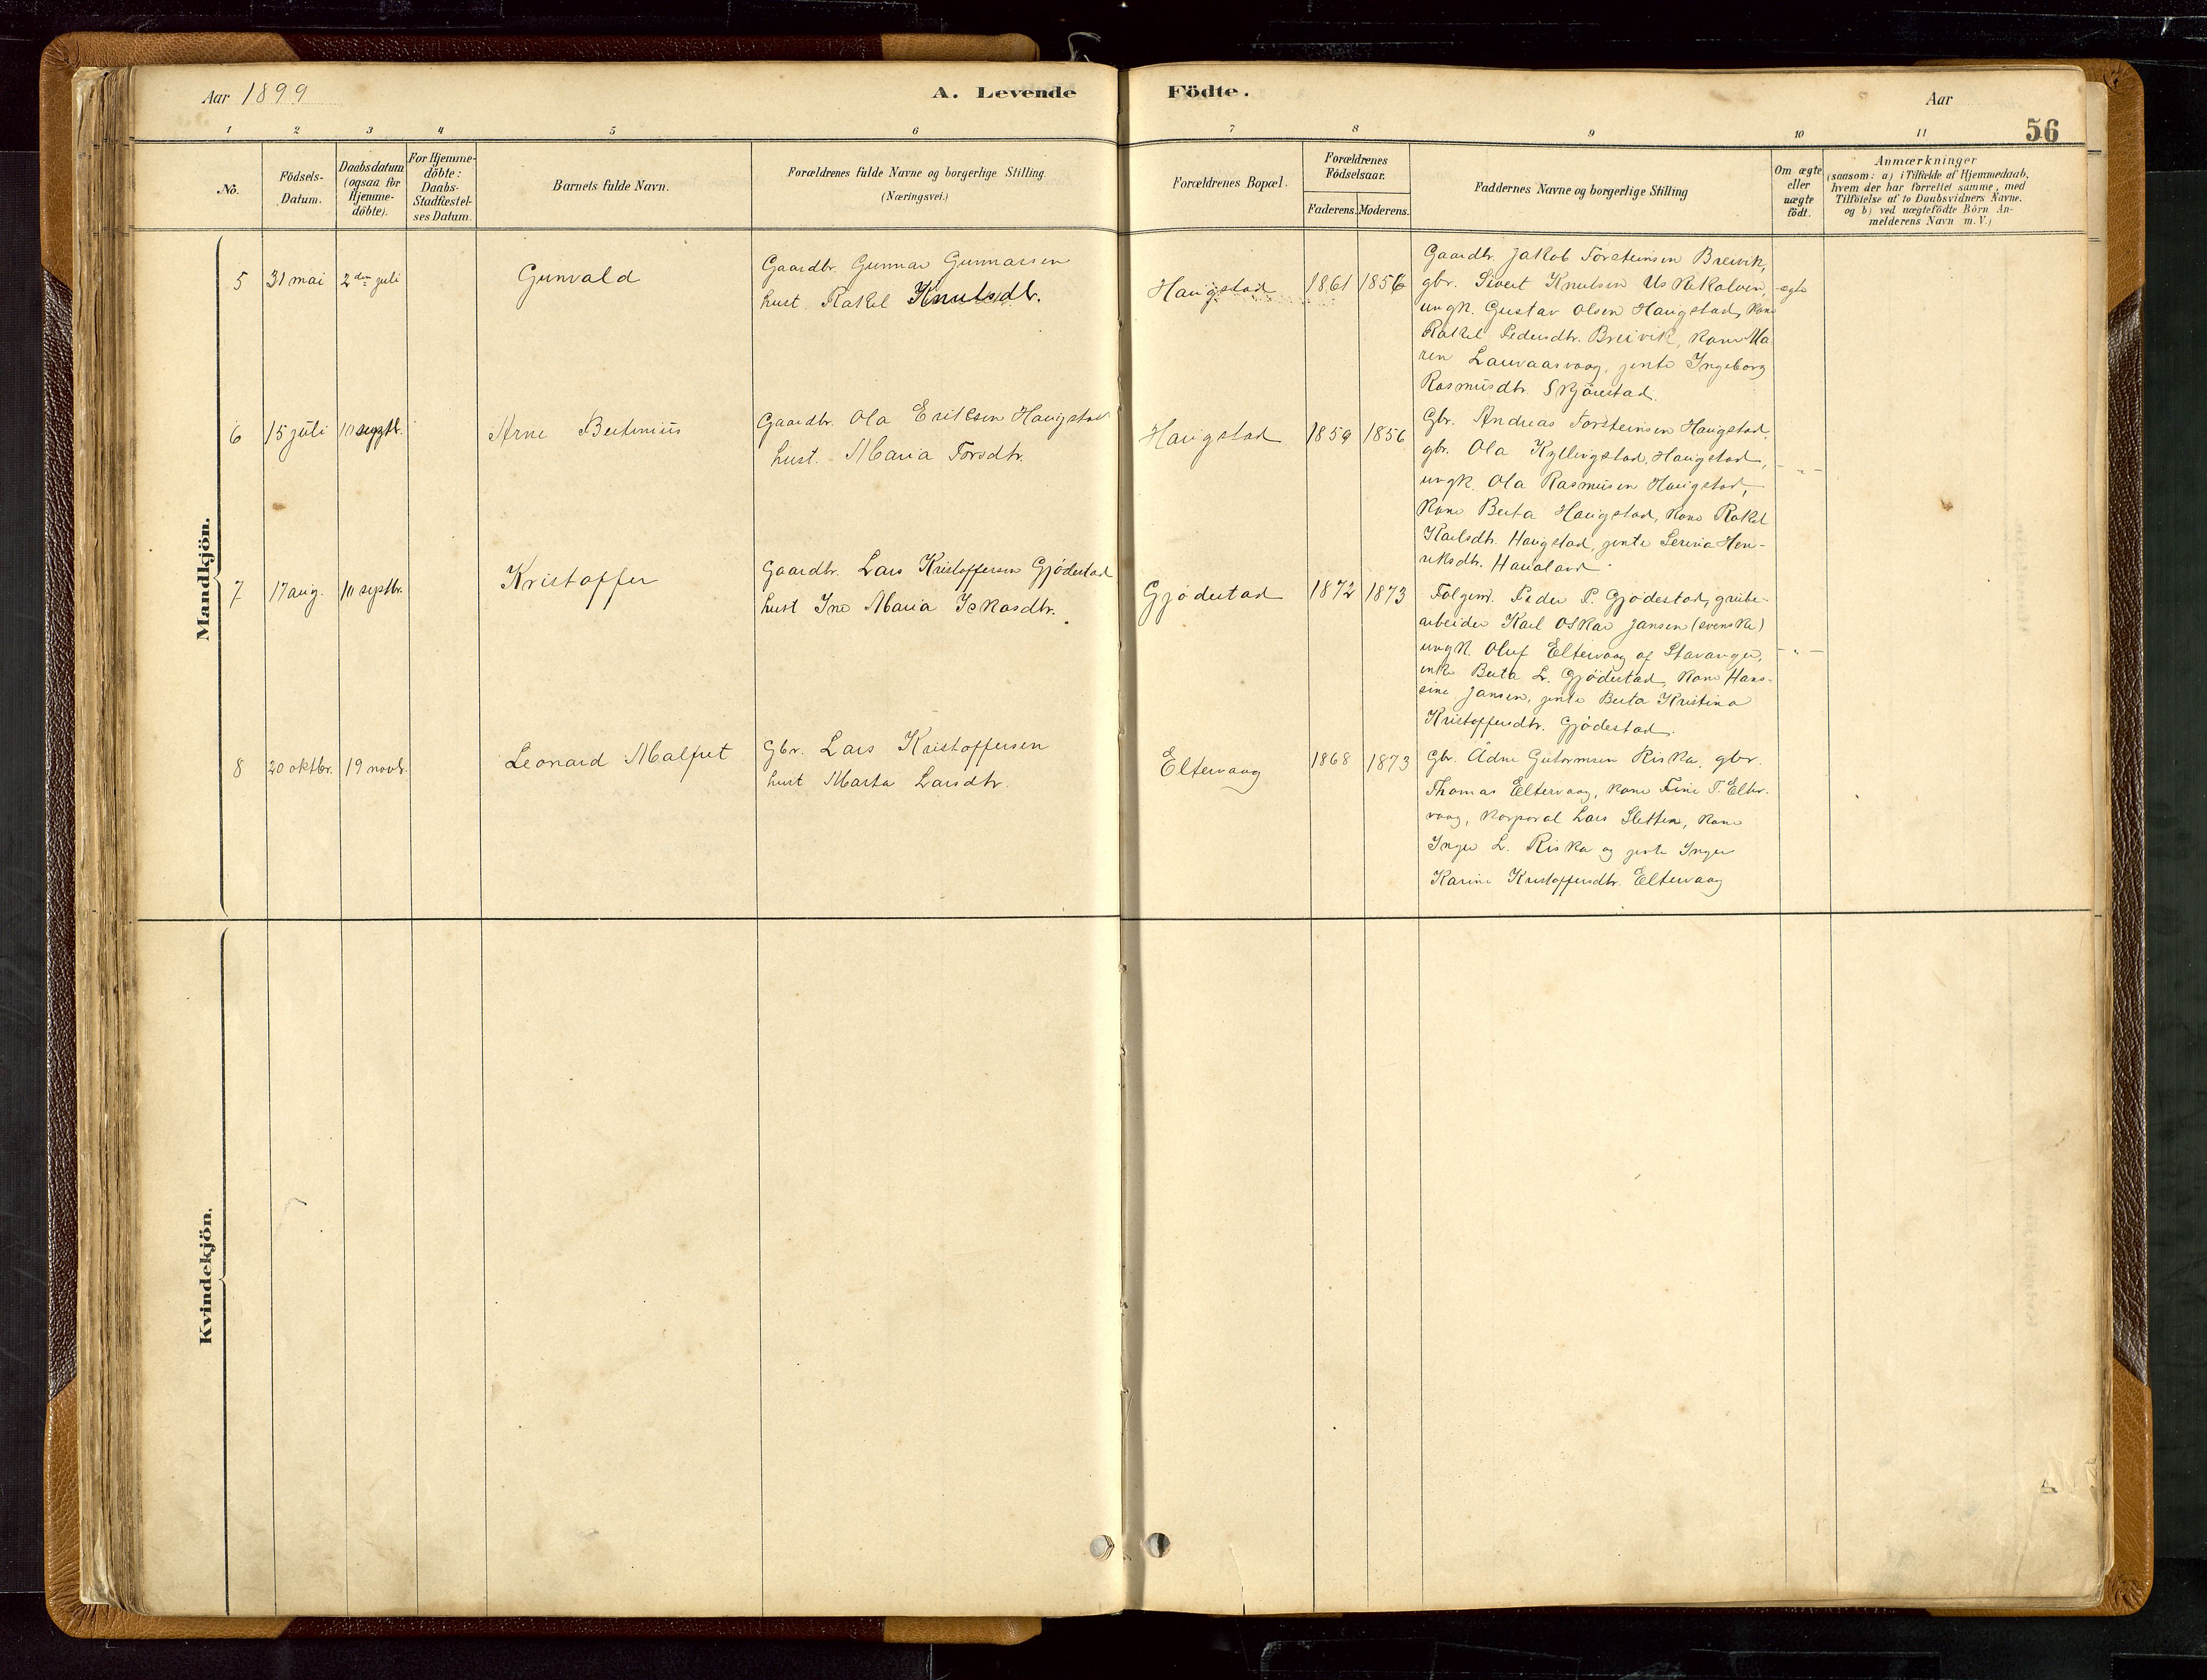 Aar 1899
A. Levende Födte.
Aar
56
1 2 3 4 5 6 7 8 9 10 11
No.
Födsels-
Datum.
Daabsdatum
(ogsaa for
Hjemme-
döbte).
For Hjemme-
döbte:
Daabs-
Stadfæstel-
ses Datum.
Barnets fulde Navn.
Forældrenes fulde Navne og borgerlige Stilling
(Næringsvei.)
Forældrenes Bopæl.
Forældrenes
Födselsaar.
Faderens. Moderens.
Faddernes Navne og borgerlige Stilling
Om ægte
eller
uægte
födt.
Anmærkninger
(saasom: a) i Tilfælde af Hjemmedaab,
hvem der har forrettet samme, med
Tilföielse af to Daabsvidners Navne.
og b) ved uægtefödte Börn An-
melderens Navn m. V.)
Mandkjön.
5 31 mai 2den juli Gunvald
Gaardbr. Gunnar Gunnarsen
hust. Rakel Knutsdtr.
Haugstad 1861 1856
Gaardbr. Jakob Torsteinsen Breivik,
gbr. Sivert Knutsen Uskekalven,
ungk. Gustav Olsen Haugstad, kone
Rakel Pedersdtr. Breivik, kone Ma-
ren Lauvaasvaag, jente Ingeborg
Rasmusdtr. Skjörestad.
ægte
6 15 juli 10 septbr. Arne Bertinius
Gaardbr. Ola Eriksen Haugstad
hust. Maria Torsdtr.
Haugstad 1859 1856
Gbr. Andreas Torsteinsen Haugstad,
gbr. Ola Kyllingstad, Haugstad,
ungk. Ola Rasmusen Haugstad,
kone Berta Haugstad, kone Rakel
Karlsdtr. Haugstad, jente Serina Hen-
riksdtr. Haualand.
- " -
7 17 aug. 10 septbr. Kristoffer
Gaardbr. Lars Kristoffersen Gjödestad
hust Ine Maria Jonasdtr.
Gjödestad 1872 1873
Folgem. Peder P. Gjödestad, grube-
arbeider Karl Oskar Jansen (svenske)
ungk. Oluf Eltervaag af Stavanger,
enke Berta L. Gjödestad, kone Hans-
sine Jansen, jente Berta Kristina
Kristoffersdtr. Gjödestad.
- " -
8 20 oktbr. 19 novb. Leonard Malfret
Gbr. Lars Kristoffersen
hust Marta Larsdtr.
Eltervaag 1868 1873
Gbr. Ådne Gutormsen Riska, gbr.
Thomas Eltervaag, kone Tine T. Elter-
vaag, korporal Lars Sletten, kone
Inger L. Riska og jente Inger
Karine Kristoffersdtr. Eltervaag
Kvindekjön.